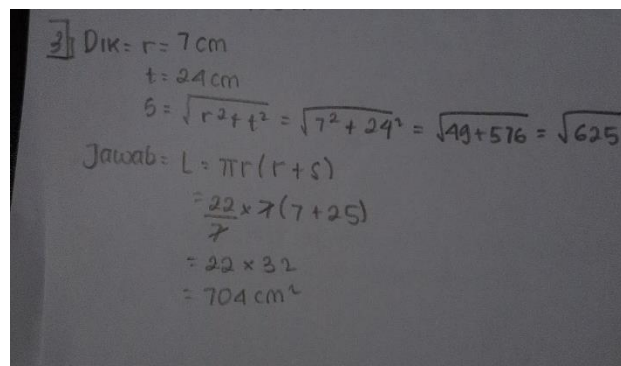 3] Dik = r = 7 cm
t = 24 cm
s = √r²+t² = √7²+24² = √49+576 = √625
Jawab = L = πr(r+s)
= 22/7 × 7(7+25)
= 22 × 32
= 704 cm²